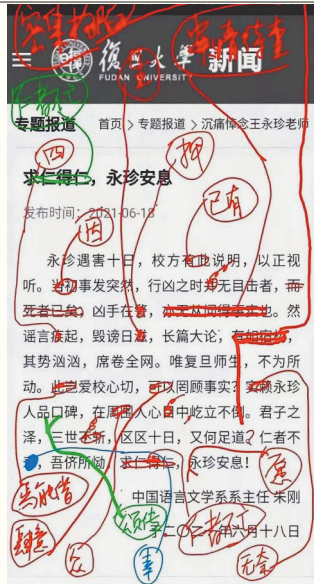 復旦大學 新闻
FUDAN UNIVERSITY
专题报道 首页 > 专题报道 > 沉痛悼念王永珍老师
四
押
求仁得仁，永珍安息
已有
发布时间：2021-06-18
因
永珍遇害十日，校方有些说明，以正视
听。当初事发突然，行凶之时并无目击者，而
死者已矣，凶手在警，亦无从问得事实也。然
谣言疯起，毁谤日滋，长篇大论，有如宿构，
其势汹汹，席卷全网。唯复旦师生，不为所
动。此之爱校心切，可以罔顾事实？实赖永珍
人品口碑，在周围人心目中屹立不倒。君子之
泽，三世未斩，区区十日，又何足道？仁者不
寿，吾侪所恸，求仁得仁，永珍安息！
中国语言文学系系主任 朱刚
二〇二一年六月十八日
众
奉
无奈